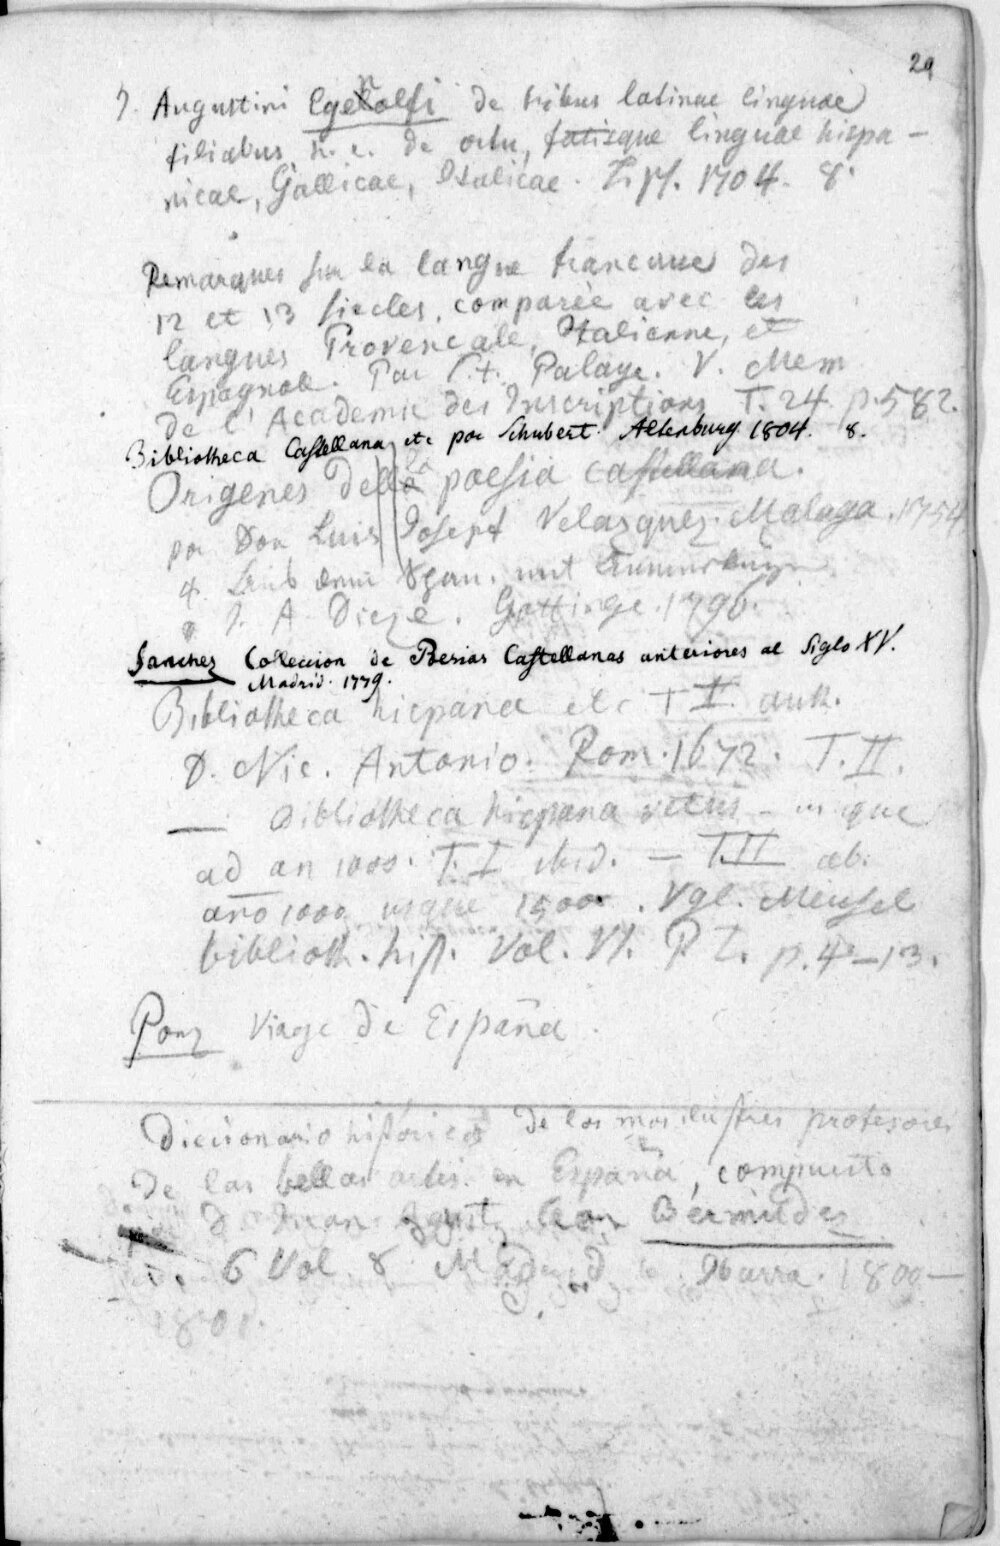 29
J. Augustini Egenolfi de tribus latinae linguae
filiabus, h. e. de ortu, fatisque linguae hispa-
nicae, Gallicae, Italicae. Lips. 1704. 8.
Remarques sur la langue francaise des
12 et 13 siecles, comparèe avec les
langues Provencale, Italienne, et
Espagnole. Par Palaye. V. Mem
de l'Academie des Inscriptions T. 24. p. 582.
Bibliotheca Castellana etc por Schubert. Altenburg 1804. 8.
Origenes de la poesia castellana.
por Don Luis Josept Velazquez. Malaga. 1754
4. mit
J. A. Dieze. Gottinge. 1796.
Sanchez Coleccion de Poesias Castellanas anteriores al Siglo XV.
Madrid. 1779.
Bibliotheca hispana etc T II. auth.
D. Nic. Antonio. Rom. 1672. T. II.
— Bibliotheca hispana vetus – usque
ad an 1000. T. I ibid. — T.II ab.
año 1000 usque 1500. Vgl. Meusel
biblioth. hist. Vol. VI. P. I. p. 4–13.
Ponz Viage de España.
Diccionario histórico de los mas ilustres profesores
de las bellas artes en España, compuesto
d. Juan Agust. Cean Bermudez
6 Vol 8. Madrid Ibarra. 1800—